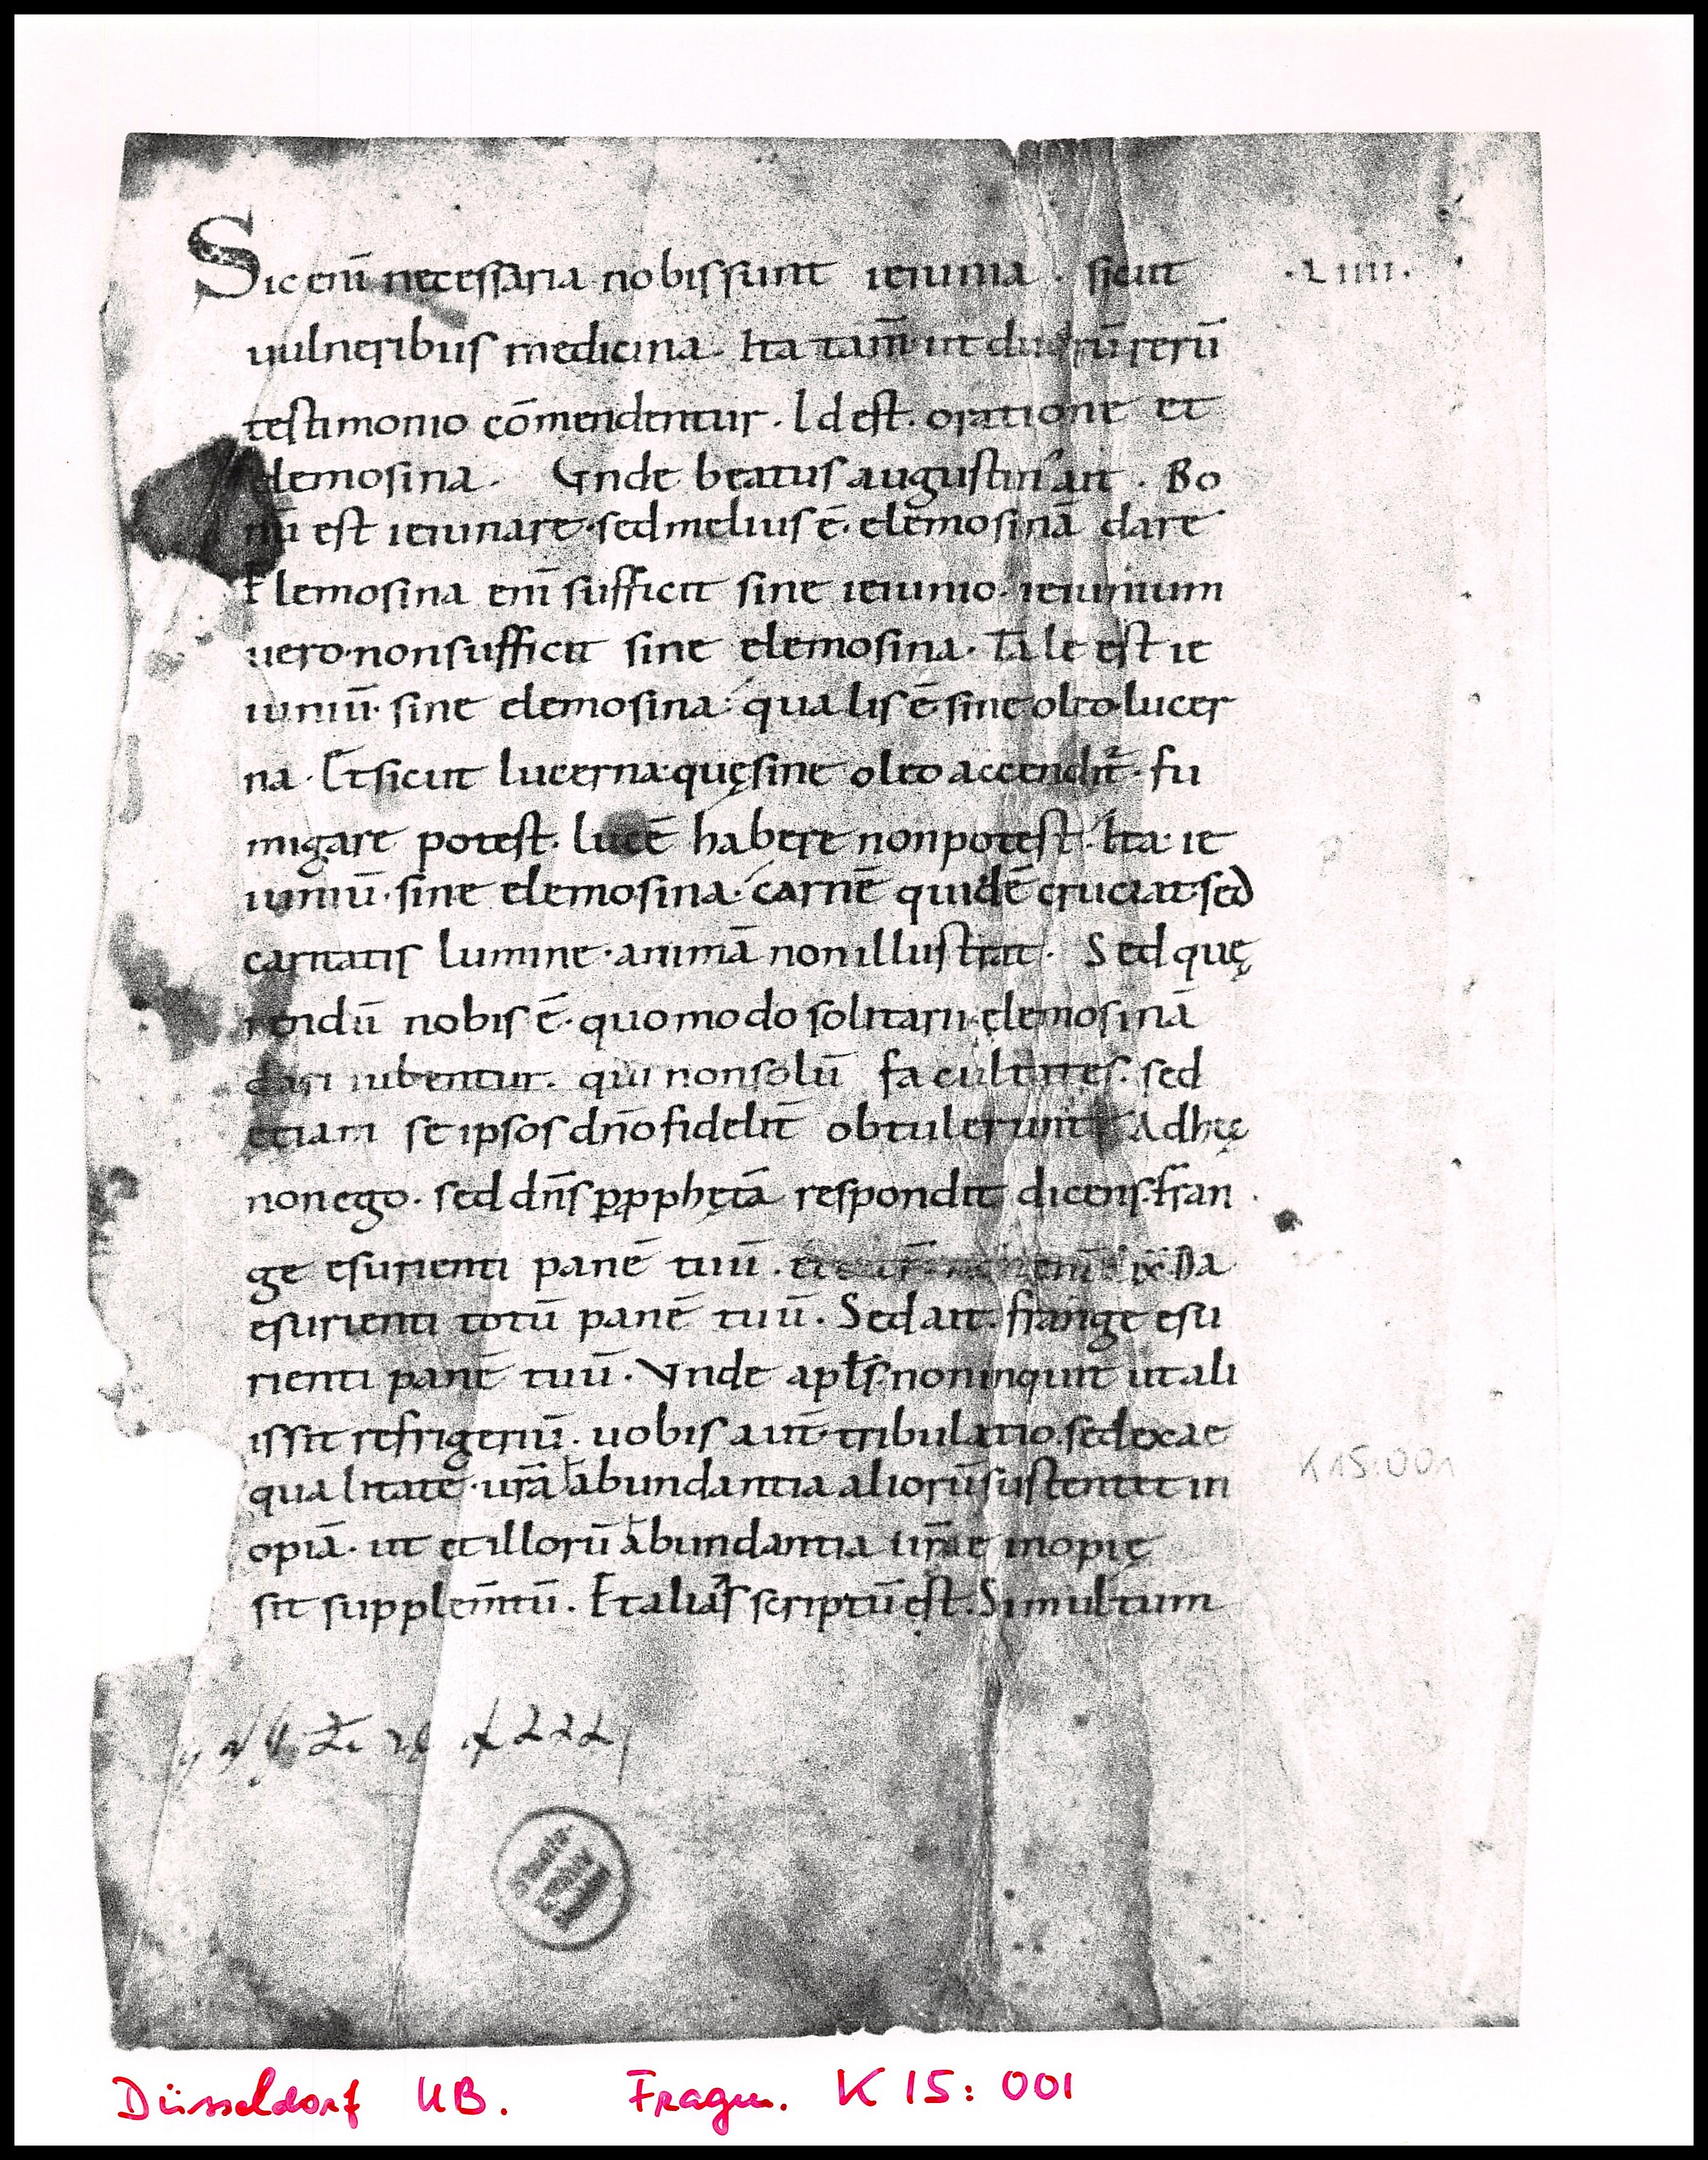 Sic enī necessaria nobis sunt ieiunia · sicut · LIIII ·
uulneribus medicina. Ita tam̄ ut rerū
testimonio cōmendentur. Id est. oratione et
elemosina. Unde beatus augustin' ait. Bo
nū est ieiunare · sed melius ē · elemosinā dare
Elemosina enī sufficit sine ieiunio. ieiunium
uero non sufficit sine elemosina. Tale est ie
iuniū · sine elemosina: qualis ē sine oleo lucer
na. Et sicut lucerna quę sine oleo accendit̄ · fu
migare potest. lucē habere non potest. Ita ie
iuniū · sine elemosina · carnē quidē cruciat · sed
caritatis lumine · animā non illustrat. Sed quę
rendū nobis ē · quomodo solitarii · ęlemosinā
dari iubentur. qui non solū facultates. sed
etiam se ipsos dn̄o fidelit̄ obtulerunt. Ad hęc
non ego. sed dn̄s ꝑ ꝓphętā respondit dicens. fran
ge esurienti panē tuū. Da
esurienti totū panē tuū. Sed ait. frange esu
rienti panē tuū. Vnde apl̄s. non inquit ut ali
is sit refrigeriū. uobis aut̄ tribulatio. sed ex ae
qualitate · ur̄a habundantia aliorū sustentet in
opiā · ut et illorū habundantia ur̄ae inopię
sit supplem̄tū. Et alias scriptū ęst. Si multum
K15:001
Düsseldorf UB. Fragm. K 15: 001